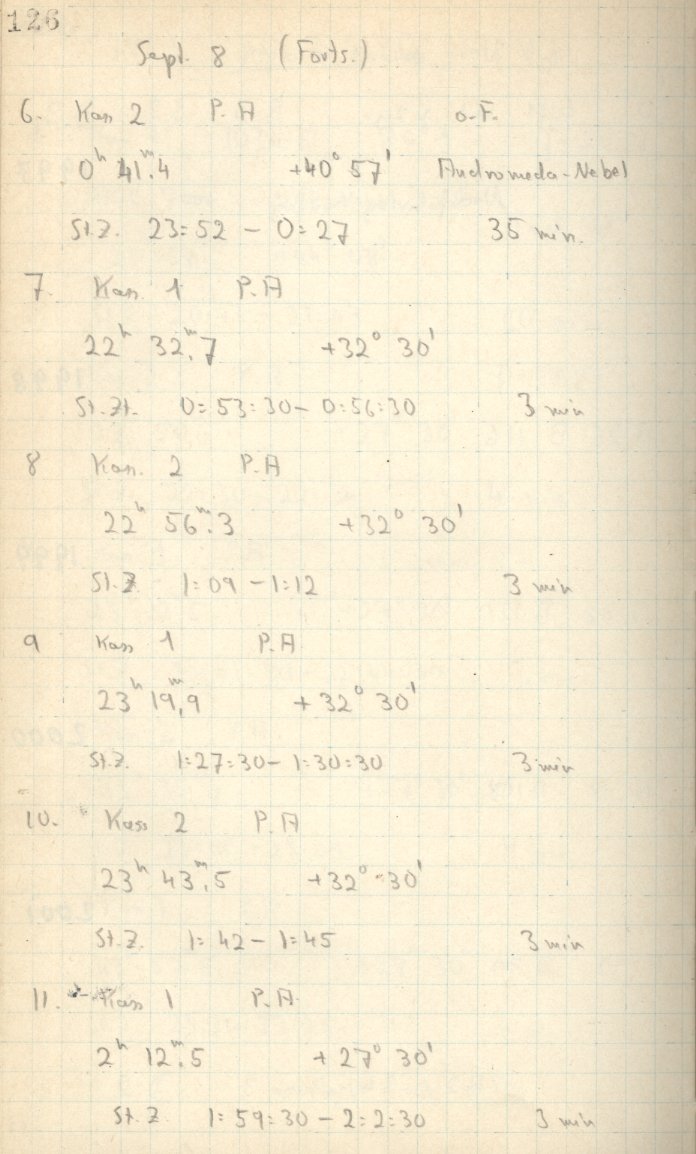 126
Sept. 8 (Forts.)
6. Kas 2 P. A o.F.
0ʰ 41ᵐ.4 +40° 57' Andromeda-Nebel
St.Z. 23:52 - 0:27 35 min.
7. Kas. 1 P.A
22ʰ 32ᵐ.7 +32° 30'
St.Zt. 0:53:30 - 0:56:30 3 min
8 Kas. 2 P.A
22ʰ 56ᵐ.3 +32° 30'
St.Z 1:09 - 1:12 3 min
9 Kass 1 P.A
23ʰ 19ᵐ,9 +32° 30'
St.Z. 1:27:30 - 1:30:30 3 min
10. Kass 2 P.A
23ʰ 43ᵐ.5 +32° 30'
St.Z. 1:42 - 1:45 3 min
11. Kass 1 P.A.
2ʰ 12ᵐ.5 +27° 30'
St.Z 1:59:30 - 2:2:30 3 min